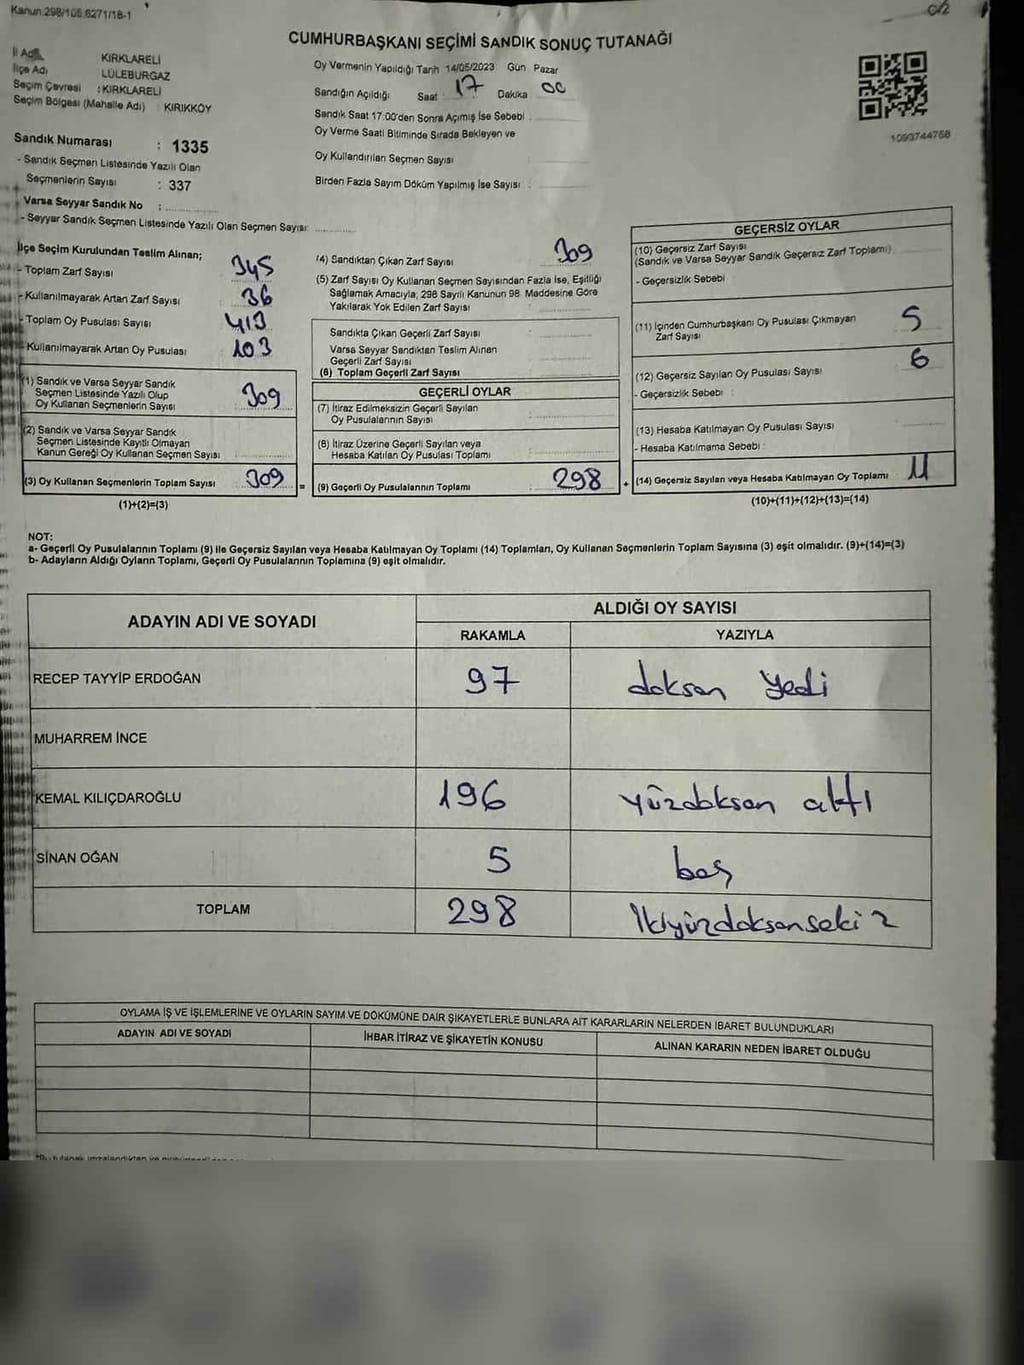 Kanun.298/105,6271/18-1
C/2
CUMHURBAŞKANI SEÇİMİ SANDIK SONUÇ TUTANAĞI
İl Adı KIRKLARELİ
İlçe Adı LÜLEBURGAZ
Seçim Çevresi : KIRKLARELİ
Seçim Bölgesi (Mahalle Adı) : KIRIKKÖY
Sandık Numarası : 1335
- Sandık Seçmen Listesinde Yazılı Olan
Seçmenlerin Sayısı : 337
Varsa Seyyar Sandık No :
- Seyyar Sandık Seçmen Listesinde Yazılı Olan Seçmen Sayısı:
Oy Vermenin Yapıldığı Tarih 14/05/2023 Gün Pazar
Sandığın Açıldığı Saat : 17 Dakika 00
Sandık Saat 17:00'den Sonra Açılmış İse Sebebi
Oy Verme Saati Bitiminde Sırada Bekleyen ve
Oy Kullandırılan Seçmen Sayısı
Birden Fazla Sayım Döküm Yapılmış İse Sayısı
1093744758
İlçe Seçim Kurulundan Teslim Alınan;
- Toplam Zarf Sayısı 345
- Kullanılmayarak Artan Zarf Sayısı 36
- Toplam Oy Pusulası Sayısı 413
- Kullanılmayarak Artan Oy Pusulası 103
(1) Sandık ve Varsa Seyyar Sandık
Seçmen Listesinde Yazılı Olup
Oy Kullanan Seçmenlerin Sayısı 309
(2) Sandık ve Varsa Seyyar Sandık
Seçmen Listesinde Kayıtlı Olmayan
Kanun Gereği Oy Kullanan Seçmen Sayısı
(3) Oy Kullanan Seçmenlerin Toplam Sayısı 309
(1)+(2)=(3)
=
(4) Sandıktan Çıkan Zarf Sayısı 309
(5) Zarf Sayısı Oy Kullanan Seçmen Sayısından Fazla İse, Eşitliği
Sağlamak Amacıyla; 298 Sayılı Kanunun 98. Maddesine Göre
Yakılarak Yok Edilen Zarf Sayısı
Sandıkta Çıkan Geçerli Zarf Sayısı
Varsa Seyyar Sandıktan Teslim Alınan
Geçerli Zarf Sayısı
(6) Toplam Geçerli Zarf Sayısı
GEÇERLİ OYLAR
(7) İtiraz Edilmeksizin Geçerli Sayılan
Oy Pusulalarının Sayısı
(8) İtiraz Üzerine Geçerli Sayılan veya
Hesaba Katılan Oy Pusulası Toplamı
(9) Geçerli Oy Pusulalarının Toplamı 298
+
GEÇERSİZ OYLAR
(10) Geçersiz Zarf Sayısı
(Sandık ve Varsa Seyyar Sandık Geçersiz Zarf Toplamı)
- Geçersizlik Sebebi
(11) İçinden Cumhurbaşkanı Oy Pusulası Çıkmayan
Zarf Sayısı 5
(12) Geçersiz Sayılan Oy Pusulası Sayısı 6
- Geçersizlik Sebebi :
(13) Hesaba Katılmayan Oy Pusulası Sayısı
- Hesaba Katılmama Sebebi :
(14) Geçersiz Sayılan veya Hesaba Katılmayan Oy Toplamı 11
(10)+(11)+(12)+(13)=(14)
NOT:
a- Geçerli Oy Pusulalarının Toplamı (9) ile Geçersiz Sayılan veya Hesaba Katılmayan Oy Toplamı (14) Toplamları, Oy Kullanan Seçmenlerin Toplam Sayısına (3) eşit olmalıdır. (9)+(14)=(3)
b- Adayların Aldığı Oyların Toplamı, Geçerli Oy Pusulalarının Toplamına (9) eşit olmalıdır.
ADAYIN ADI VE SOYADI ALDIĞI OY SAYISI
RAKAMLA YAZIYLA
RECEP TAYYİP ERDOĞAN 97 doksan yedi
MUHARREM İNCE
KEMAL KILIÇDAROĞLU 196 yüzdoksan altı
SİNAN OĞAN 5 beş
TOPLAM 298 İkiyüzdoksansekiz
OYLAMA İŞ VE İŞLEMLERİNE VE OYLARIN SAYIM VE DÖKÜMÜNE DAİR ŞİKAYETLERLE BUNLARA AİT KARARLARIN NELERDEN İBARET BULUNDUKLARI
ADAYIN ADI VE SOYADI İHBAR İTİRAZ VE ŞİKAYETİN KONUSU ALINAN KARARIN NEDEN İBARET OLDUĞU